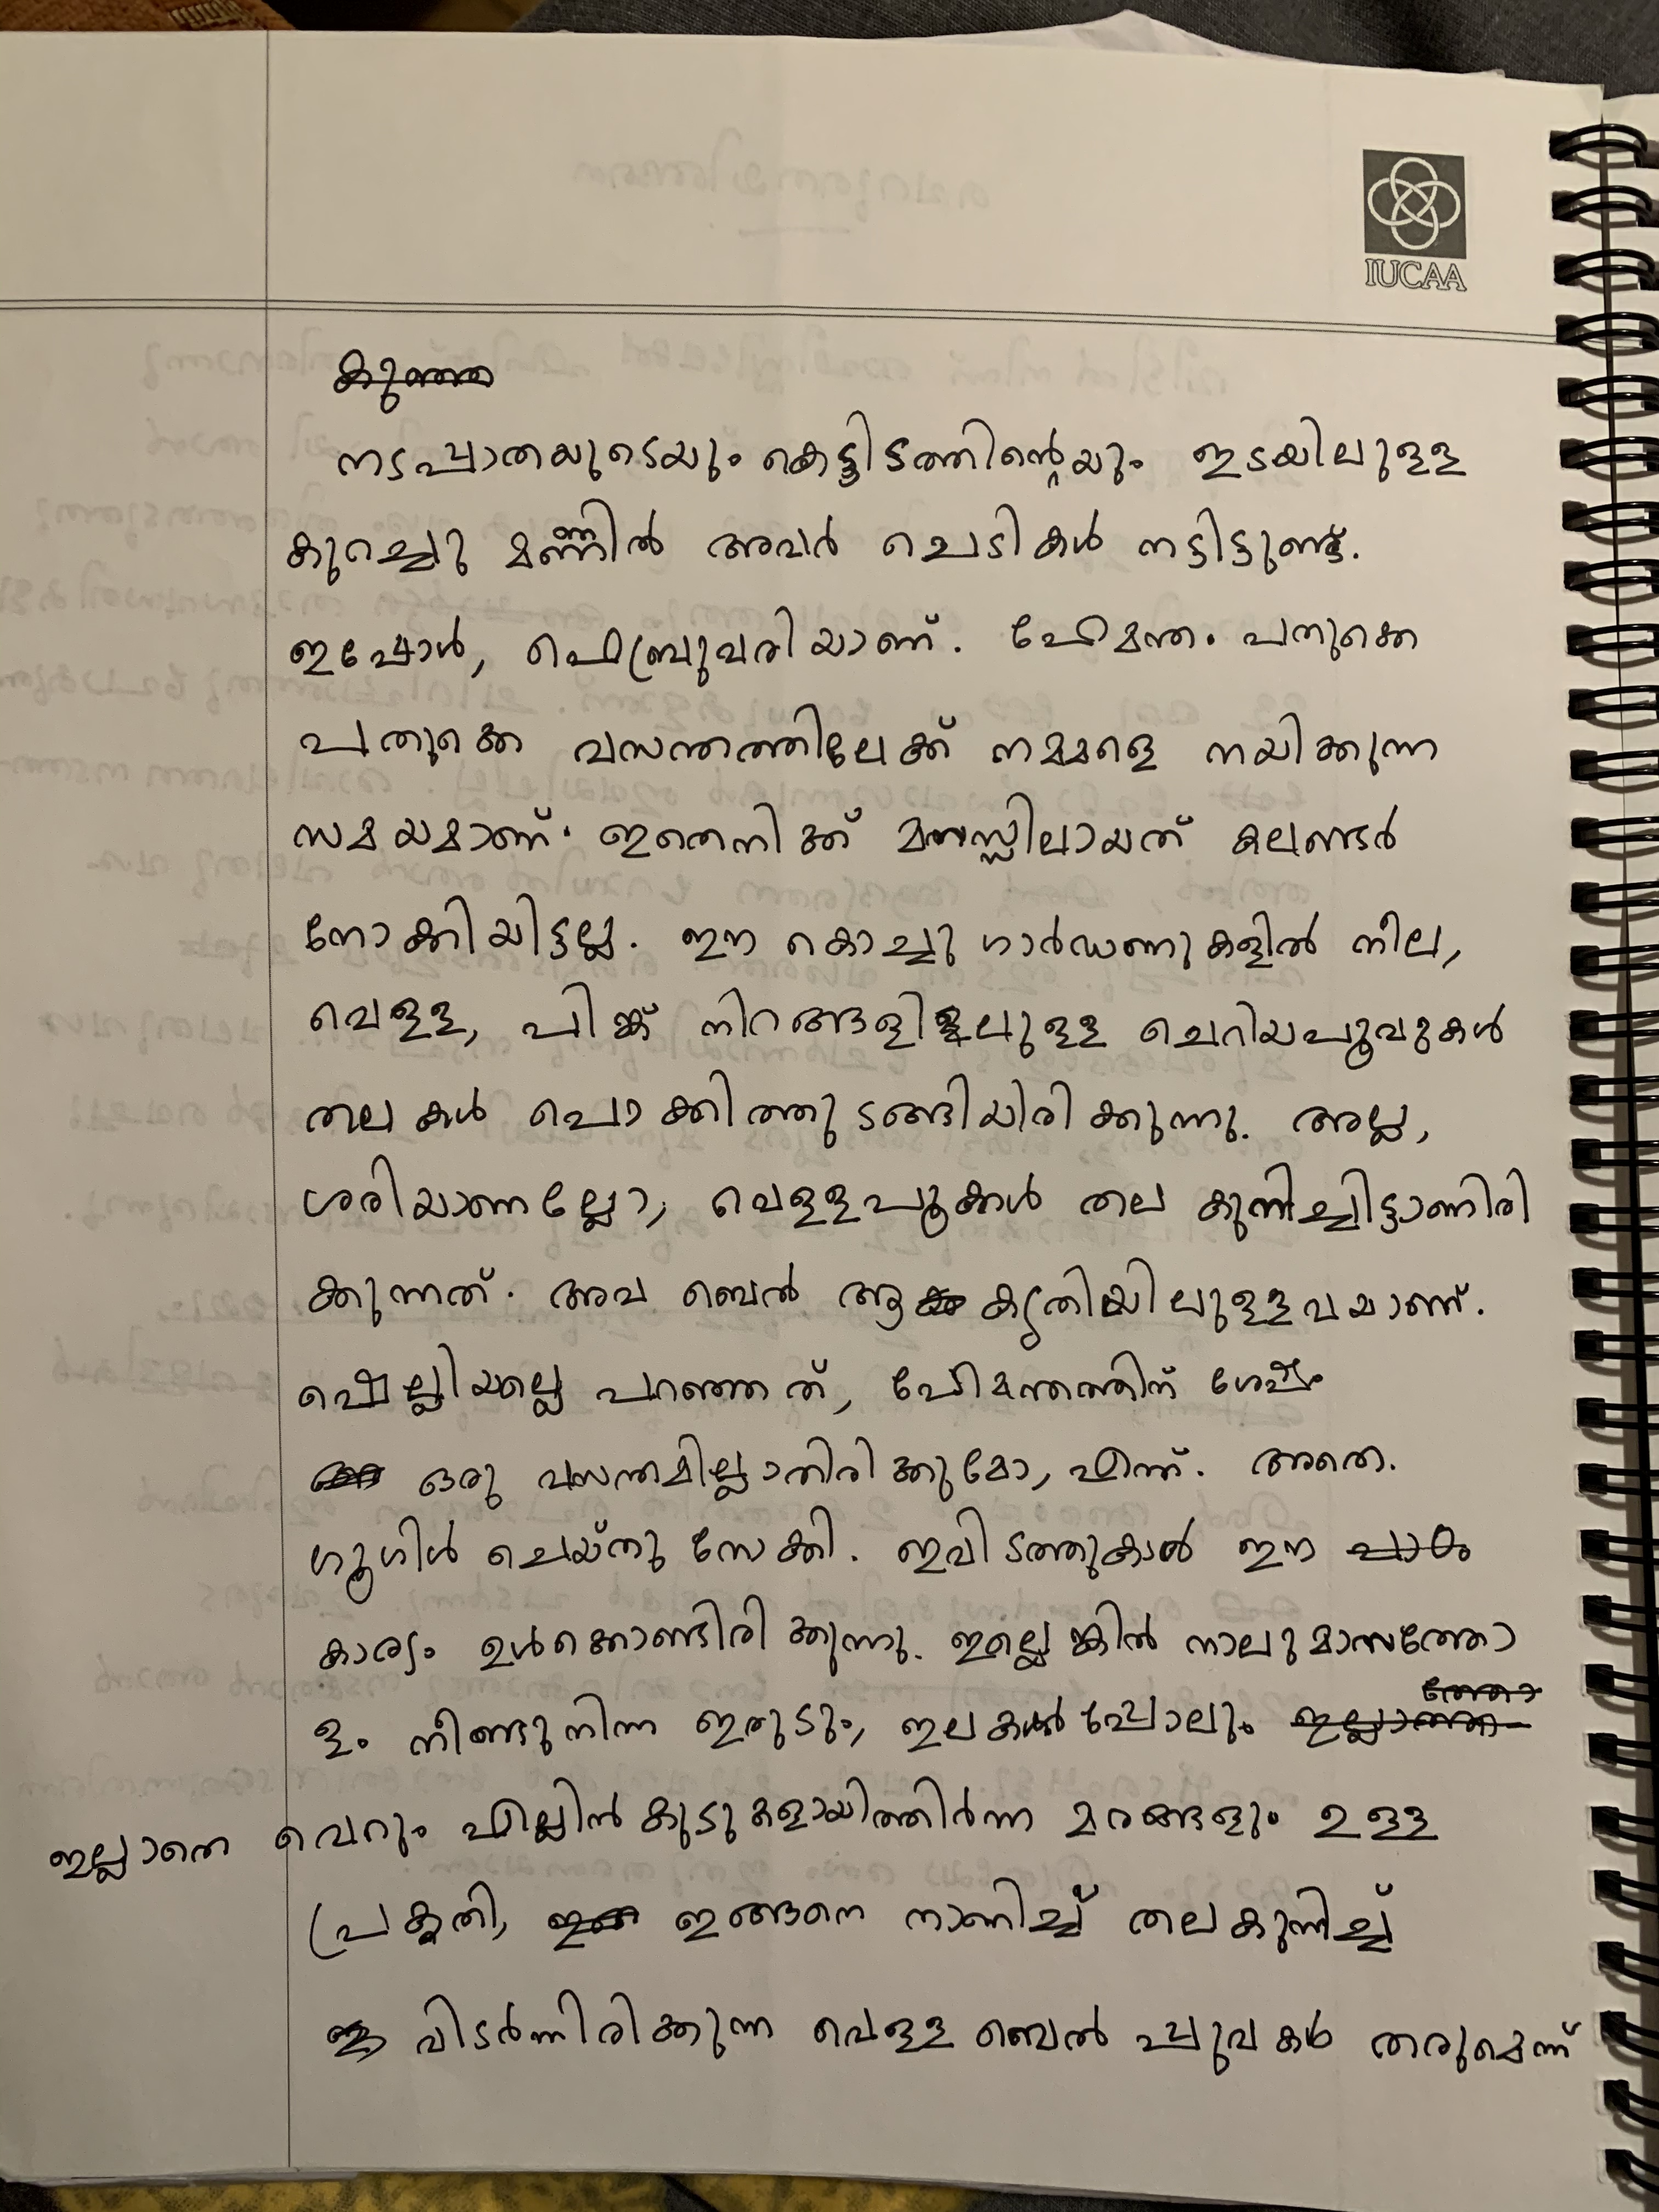 IUCAA
നടപ്പാതയുടെയും കെട്ടിടത്തിന്റെയും ഇടയിലുള്ള
കുറച്ചു മണ്ണിൽ അവർ ചെടികൾ നട്ടിട്ടുണ്ട്.
ഇപ്പോൾ, ഫെബ്രുവരിയാണ്. ഹേമന്തം പതുക്കെ
പതുക്കെ വസന്തത്തിലേക്ക് നമ്മളെ നയിക്കുന്ന
സമയമാണ്. ഇതെനിക്ക് മനസ്സിലായത് കലണ്ടർ
നോക്കിയിട്ടല്ല. ഈ കൊച്ചു ഗാർഡണുകളിൽ നീല,
വെള്ള, പിങ്ക് നിറങ്ങളിലുള്ള ചെറിയപൂവുകൾ
തലകൾ പൊക്കിത്തുടങ്ങിയിരിക്കുന്നു. അല്ല,
ശരിയാണല്ലോ, വെള്ളപൂക്കൾ തല കുനിച്ചിട്ടാണിരി
ക്കുന്നത്. അവ ബെൽ ആകൃതിയിലുള്ളവയാണ്.
ഷെല്ലിയല്ലെ പറഞ്ഞത്, ഹേമന്തത്തിന് ശേഷം
ഒരു വസന്തമില്ലാതിരിക്കുമോ, എന്ന്. അതെ.
ഗൂഗിൾ ചെയ്തു നോക്കി. ഇവിടത്തുകാർ ഈ
കാര്യം ഉൾക്കൊണ്ടിരിക്കുന്നു. ഇല്ലെങ്കിൽ നാലുമാസത്തോ
ളം നീണ്ടുനിന്ന ഇരുട്ടും, ഇലകൾപ്പോലും
ഇല്ലാതെ വെറും എല്ലിൻകൂടുകളായിത്തീർന്ന മരങ്ങളും ഉള്ള
പ്രകൃതി, ഇങ്ങനെ നാണിച്ച് തലകുനിച്ച്
വിടർന്നിരിക്കുന്ന വെള്ള ബെൽ പ്പുവകൾ തരുമെന്ന്